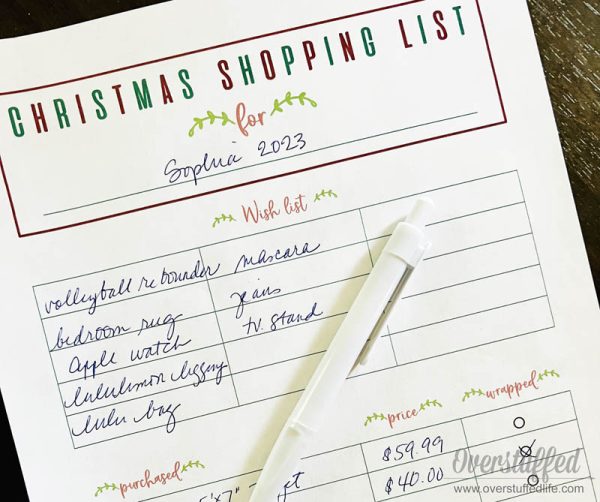 CHRISTMAS SHOPPING LIST
for
Sophia 2023
Wish list
volleyball rebounder mascara
bedroom rug jeans
apple watch tv. stand
lululemon legging
lulu bag
price wrapped
purchased $59.99
5'x7" $40.00
Overstuffed
www.overstuffedlife.com